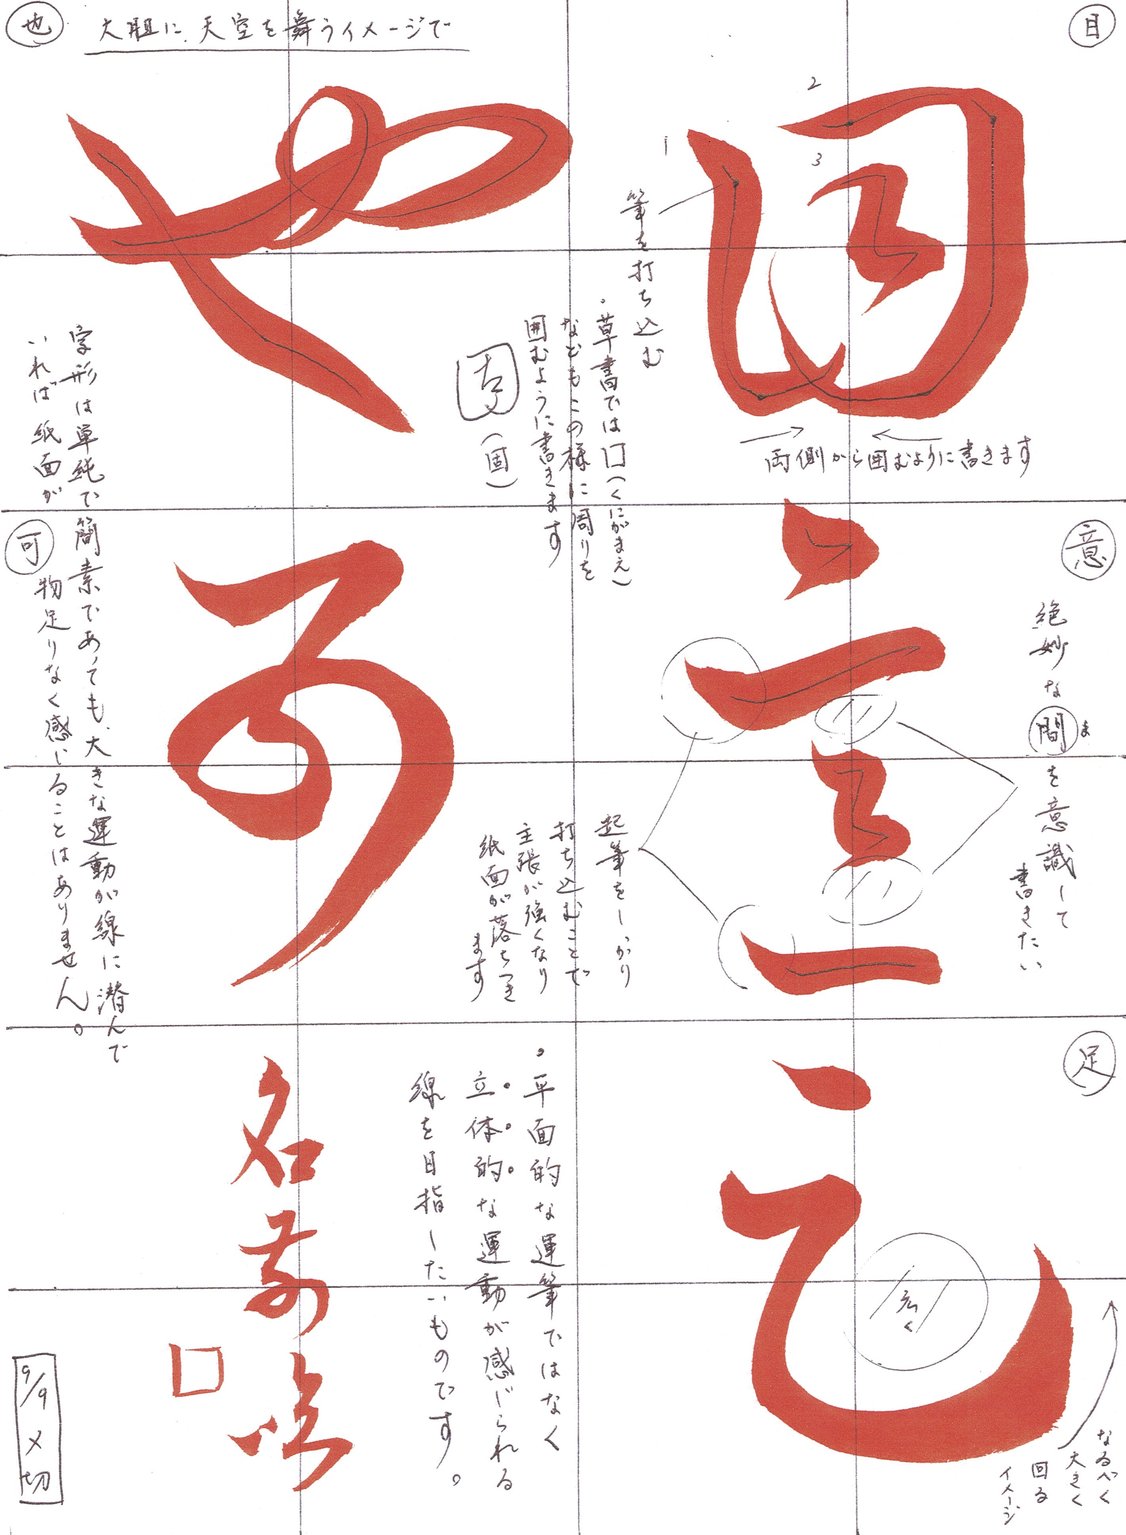 目
1
2
3
筆を打ち込む
両側から囲むように書きます
・草書では囗(くにがまえ)
などもこの様に周りを
囲むように書きます
(固)
意
絶妙な間を意識して
ま
書きたい
起筆をしっかり
打ち込むことで
主張が強くなり
紙面が落ちつき
ます
足
広く
なるべく
大きく
回る
イメージ
也
大胆に、天空を舞うイメージで
字形は単純で簡素であっても、大きな運動が線に潜んで
いれば紙面が
物足りなく感じることはありません。
可
・平面的な運筆ではなく
立体的な運動が感じられる
線を目指したいものです。
名前
9/9〆切